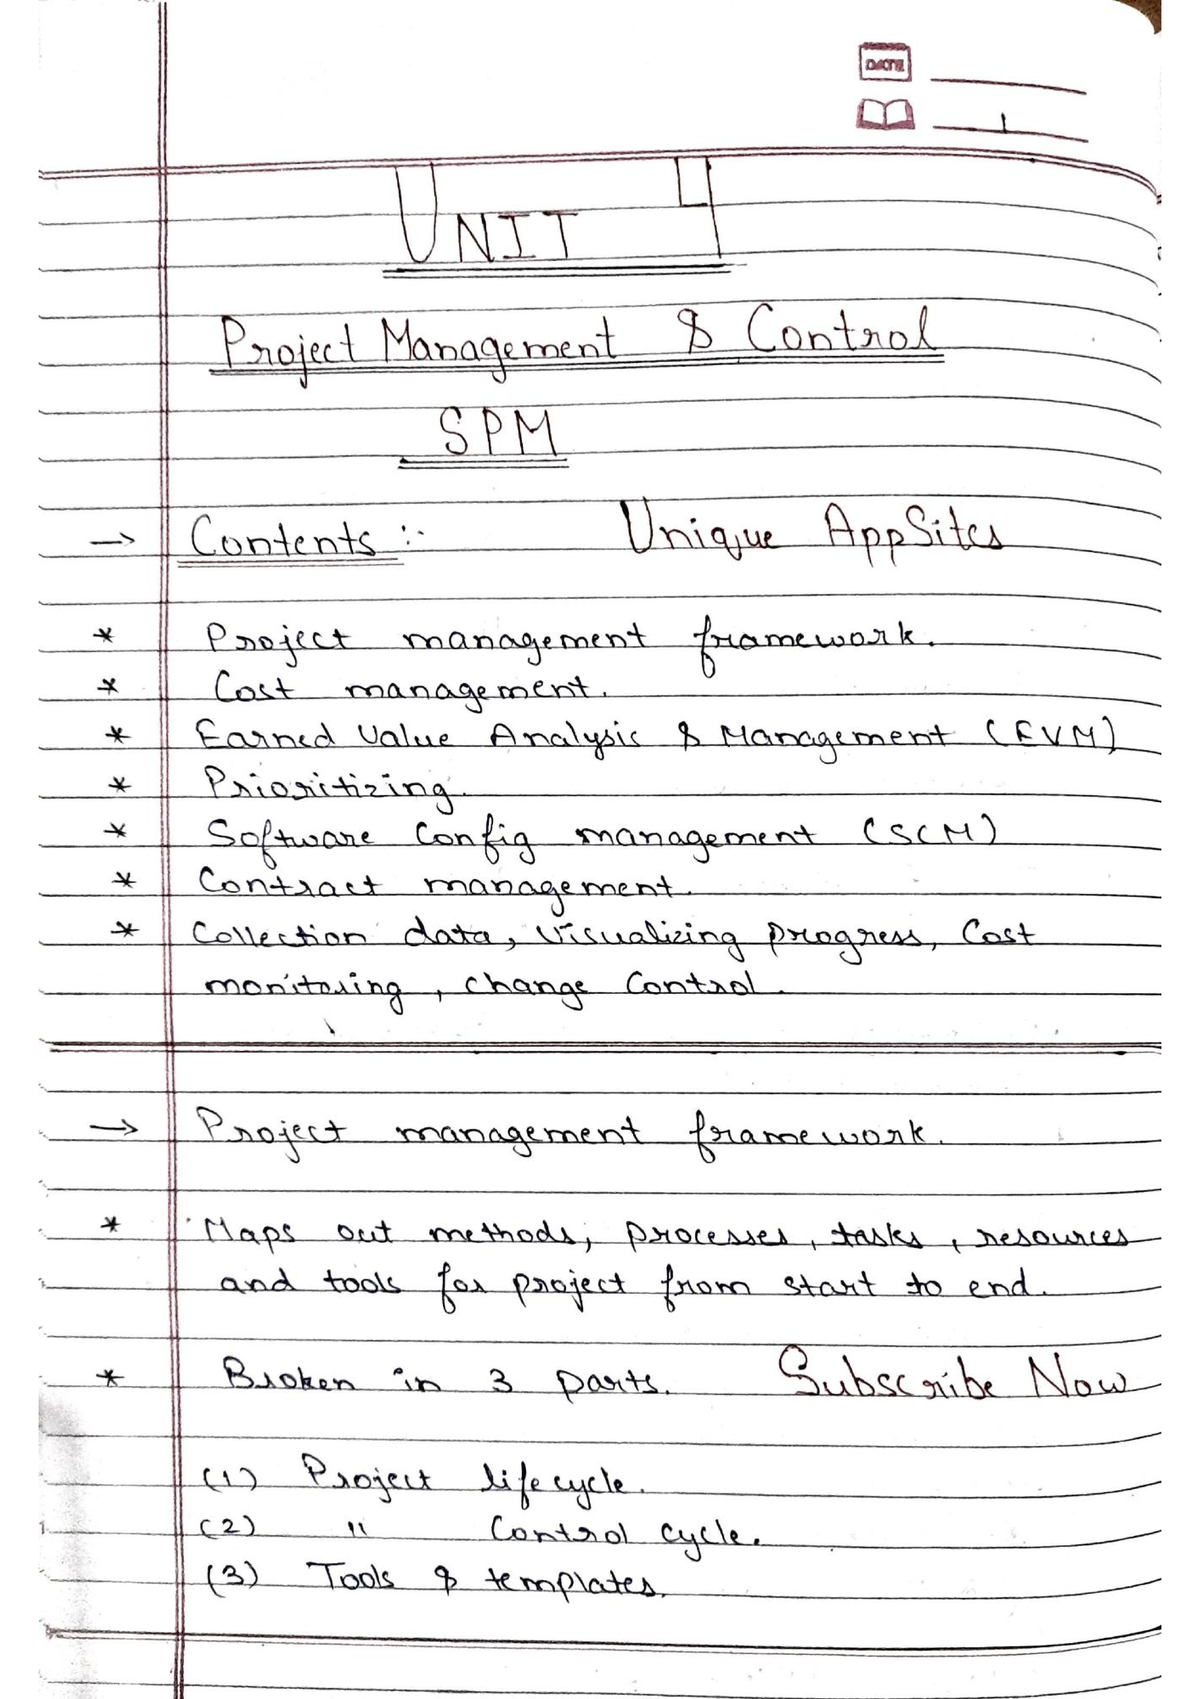 DATE
1
UNIT 4
Project Management & Control
SPM
→ Contents :-   Unique AppSites
* Project management framework.
* Cost management.
* Earned Value Analysis & Management (EVM)
* Prioritizing.
* Software Config management (SCM)
* Contract management.
* Collection data, Visualizing progress, Cost
monitoring, change Control.
→ Project management framework.
* Maps out methods, processes, tasks, resources
and tools for project from start to end.
* Broken in 3 parts.   Subscribe Now
(1) Project lifecycle.
(2) " Control cycle.
(3) Tools & templates.